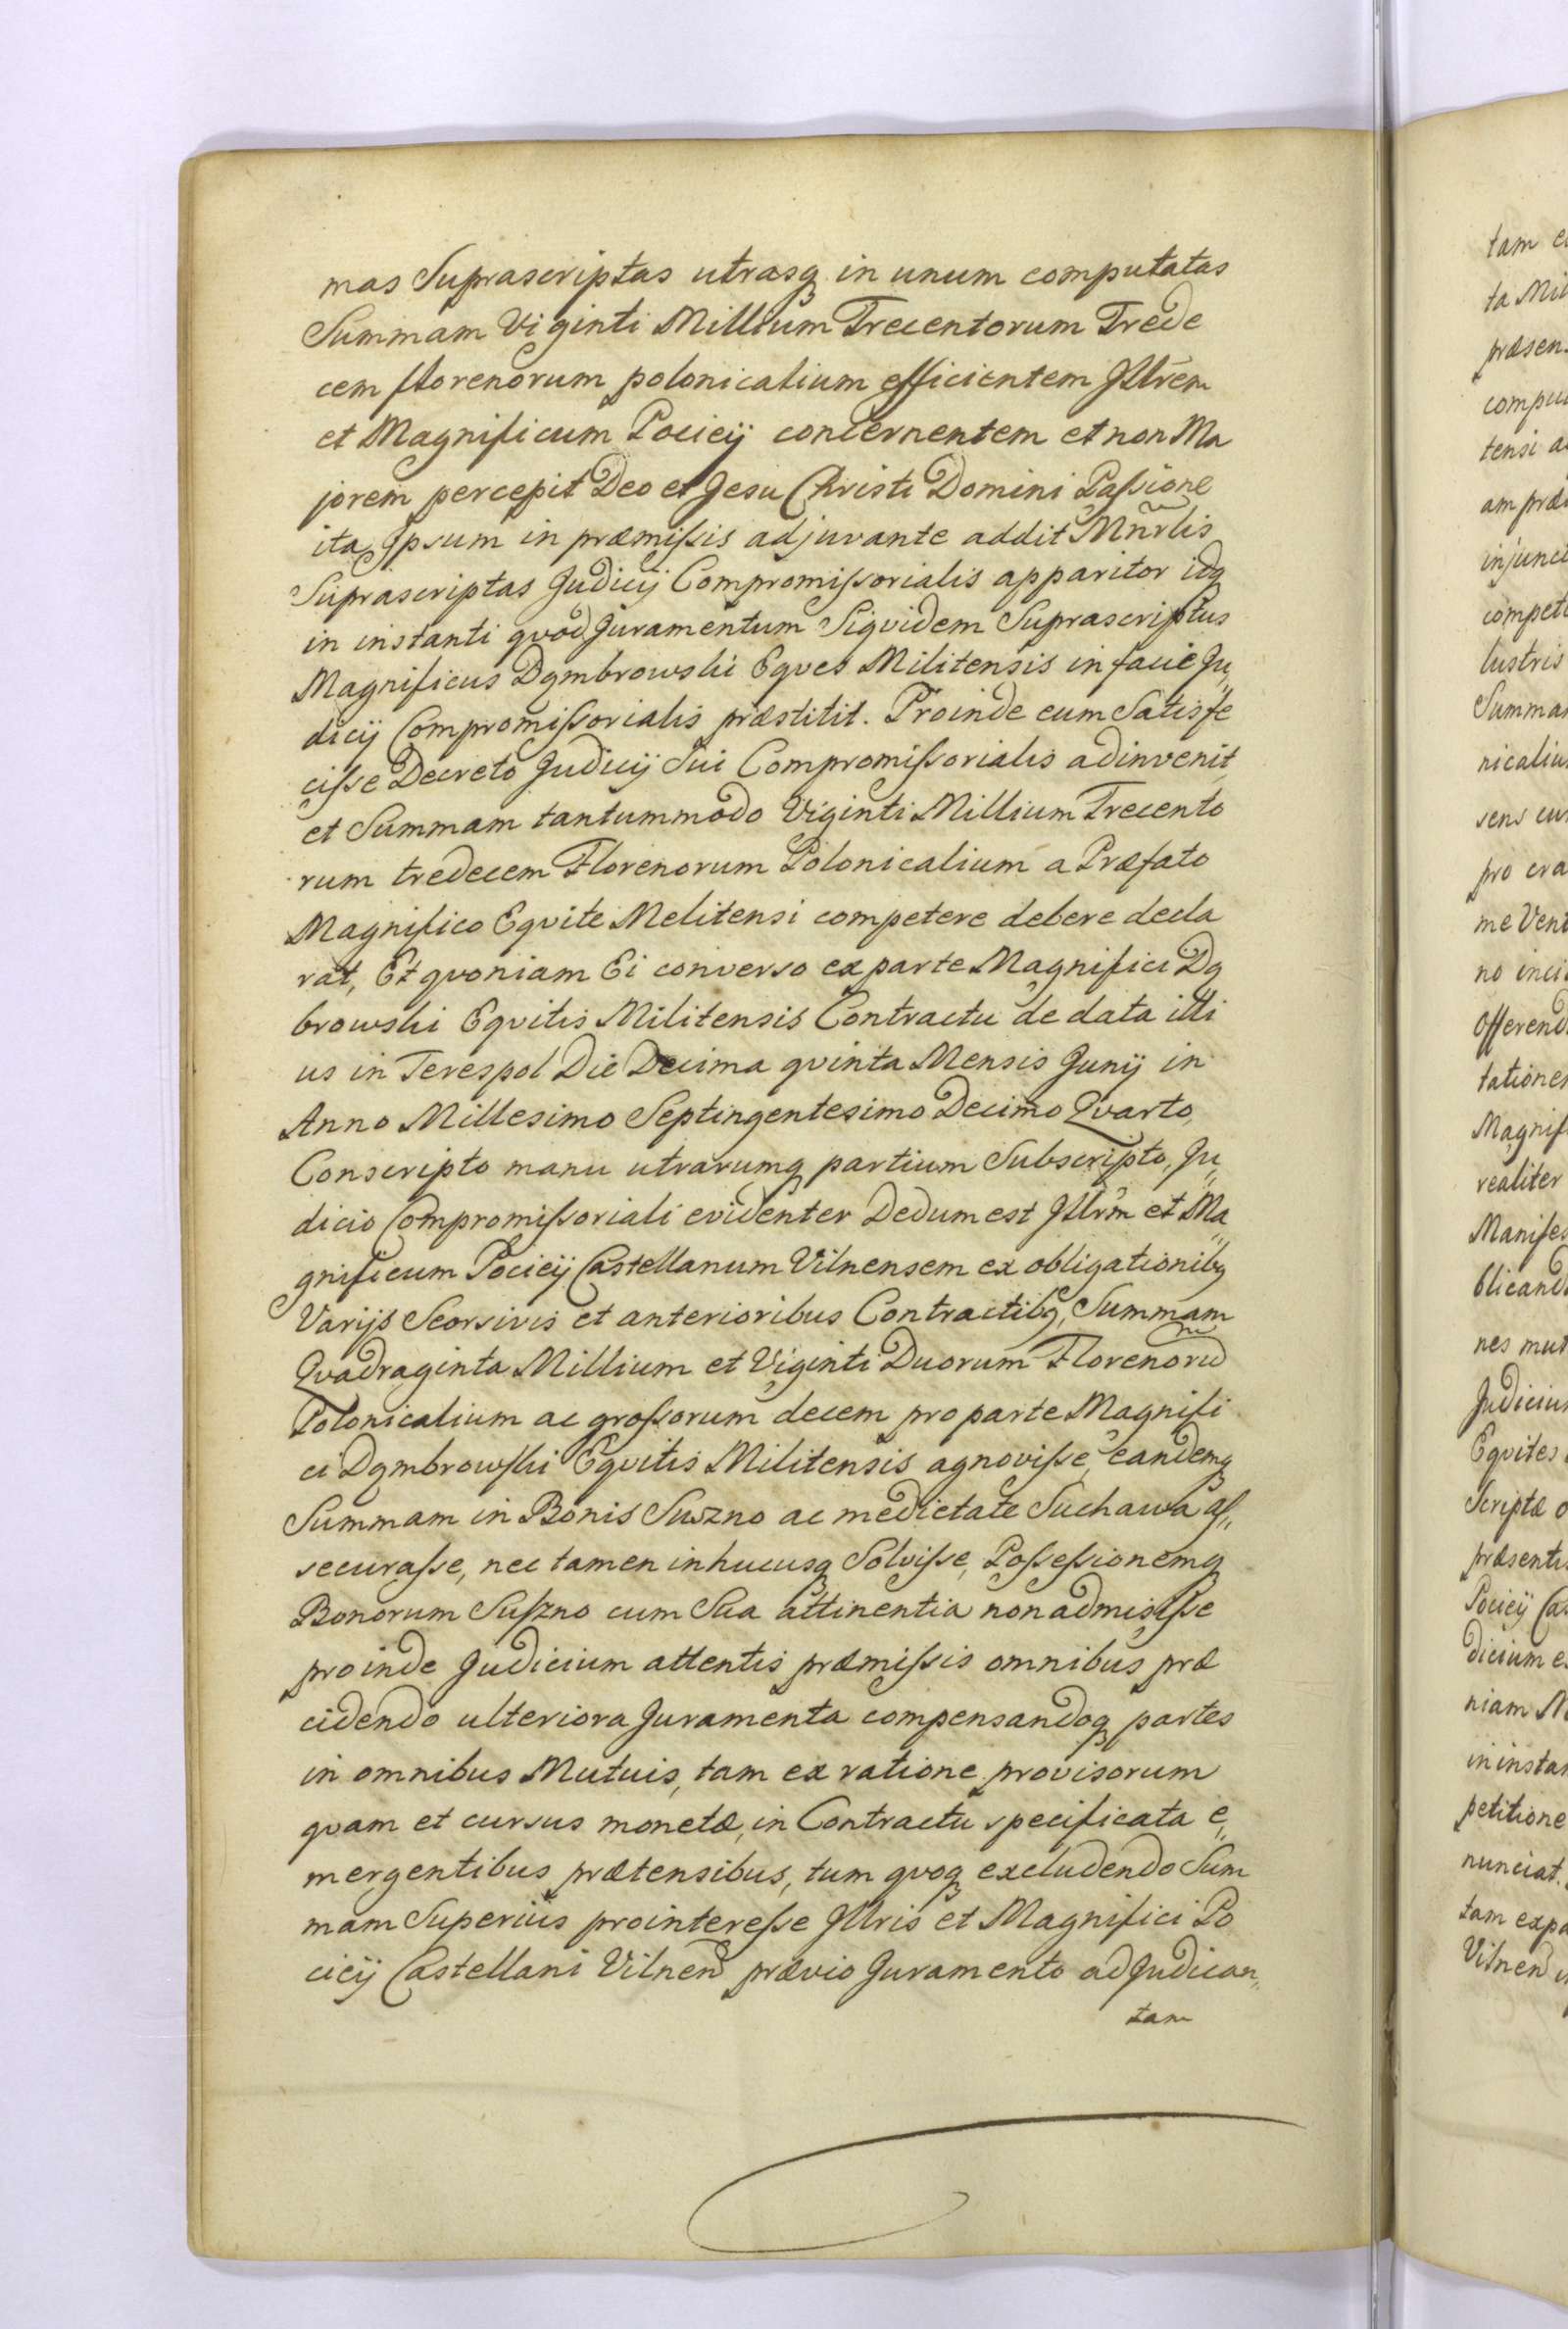 mas Suprascriptas utrasq in unum computatas
Summam Viginti Millium Trecentorum Trede
cem florenorum polonicalium efficientem Jllrēm
et Magnificum Pocieÿ concernentem et non Ma
jorem percepit Deo et Jesu Christi Domini Paſsione
ita Jpsum in præmiſsis adjuvante addit Mnrlis
Suprascriptas Judicÿ Compromiſsorialis apparitor idq
in instanti qvod Juramentum Siqvidem Suprascriptus
Magnificus Dąmbrowski Eqves Militensis in facie Ju„
dicÿ Compromiſsorialis præstitit. Proinde eum Satisfe
ciſse Decreto Judicÿ Sui Compromiſsorialis adinvenit
et Summam tantummodo Viginti Millium Trecento
rum tredecem Florenorum Polonicalium a Præfato
Magnifico Eqvite Melitensi competere debere decla
rat, Et qvoniam Ei converso ex parte Magnifici Dą
browski Eqvitis Militensis Contractu de data illi
us in Terespol Die Decima qvinta Mensis Junÿ in
Anno Millesimo Septingentesimo Decimo Qvarto,
Conscripto manu utrarumq partium Subscripto, Ju„
dicio Compromiſsoriali evidenter Dedum est Jllrm et Ma„
gnificum Pocieÿ Castellanum Vilnensem ex obligationibq
Varÿs Seorsivis et anterioribus Contractibq, Summam
Qvadraginta Millium et Viginti Duorum Florenorū
Polonicalium ac groſsorum decem pro parte Magnifi
ci Dąmbrowſki Eqvitis Militensis agnoviſse, eandemq
Summam in Bonis Suszno ac medietate Suchawa aſ„
securaſse, nec tamen inhucusq Solviſse, Poſseſsionemq
Bonorum Suſzno cum Sua attinentia non admisiſse
proinde Judicium attentis præmiſsis omnibus præ
cidendo ulteriora Juramenta compensandoq partes
in omnibus Mutuis, tam ex ratione provisorum
qvam et cursus monetæ, in Contractu specificata e„
mergentibus prætensibus, tum qvoq excludendo Sum
mam Superius prointereſse Jllris et Magnifici Po
cieÿ Castellani Vilnen prævio Juramento adjudican„
tam
tam
ta Mil
præsen
tensi a
am præ
injunct
compet
lustris
Summa
nicaliu
pro
me
no
offerend
tatione
Magnif
realiter
Manifes
blicand
nes mut
Judiciu
Eqvites
Scriptæ
præsenti
Pocieÿ Ca
dicium
niam
in instan
petitione
nunciat.
tam exp
Vilnen